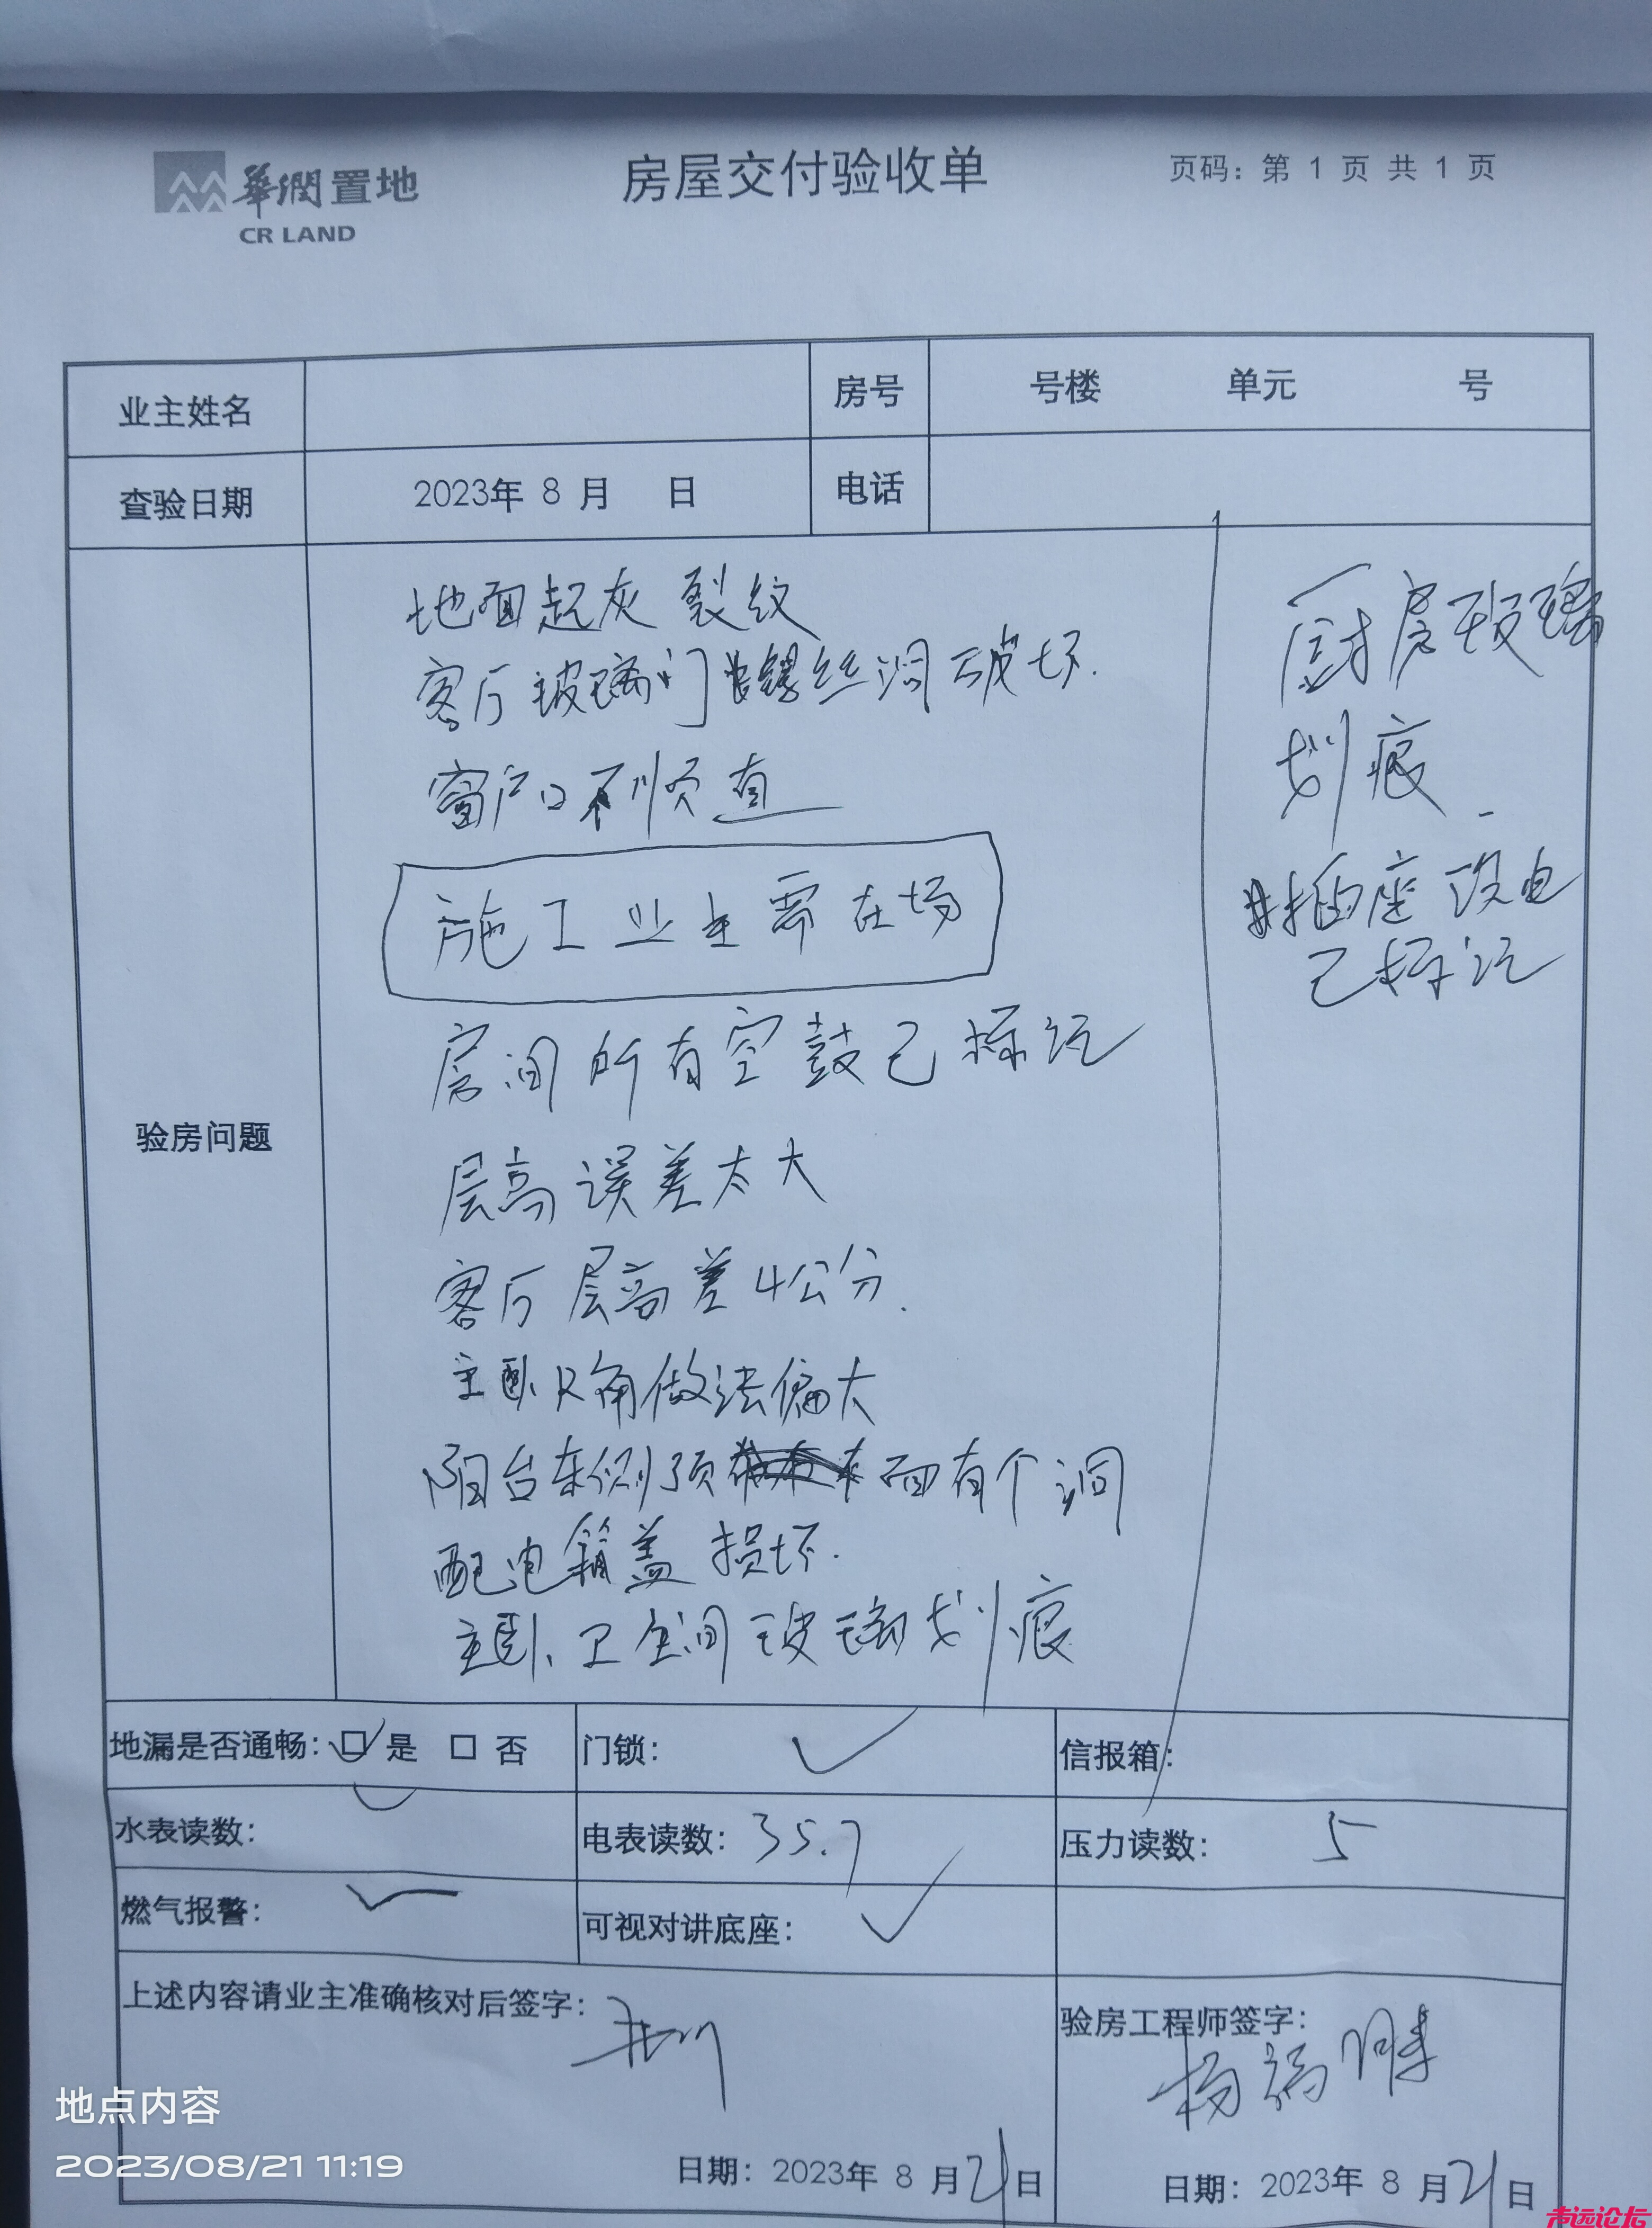 華潤置地
CR LAND
房屋交付验收单
页码：第 1 页 共 1 页
业主姓名
房号
号楼 单元 号
查验日期
2023年 8 月 日
电话
验房问题
地面起灰 裂纹
客厅玻璃门螺丝洞破坏.
窗户口不顺直
施工业主需在场
房间所有空鼓已标记
层高误差太大
客厅层高差4公分.
主卧 角做法偏大
阳台东侧顶 面有个洞
配电箱盖 损坏.
主卧、卫生间玻璃划痕
厨房玻璃
划痕
插座没电
已标记
地漏是否通畅：☑ 是 □ 否
门锁： ✓
信报箱：
水表读数：
电表读数：35.7
压力读数： 5
燃气报警： ✓
可视对讲底座： ✓
上述内容请业主准确核对后签字：
日期：2023年 8 月21日
验房工程师签字：
杨
日期：2023年 8 月21日
地点内容
2023/08/21 11:19
声远论坛